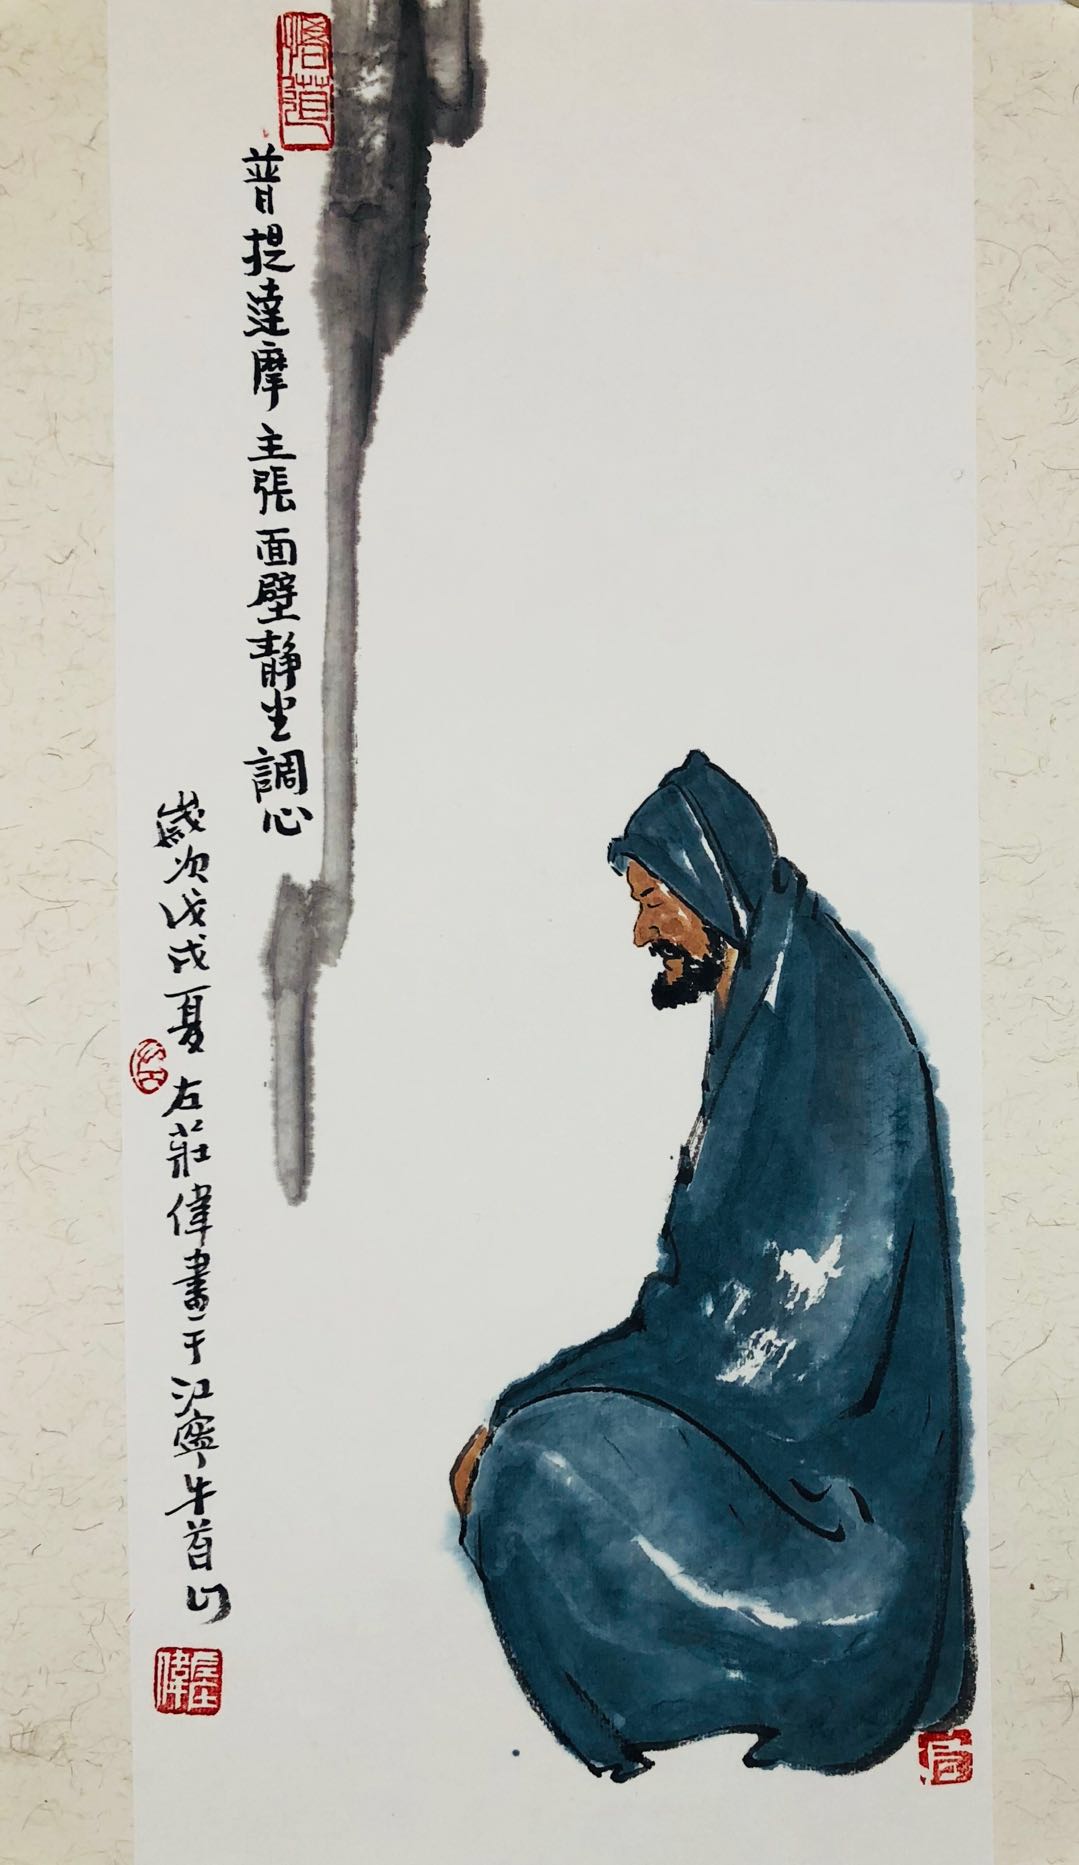 悟道
普提達摩主張面壁静坐調心
歲次戊戌夏左莊偉畫于江寧牛首山